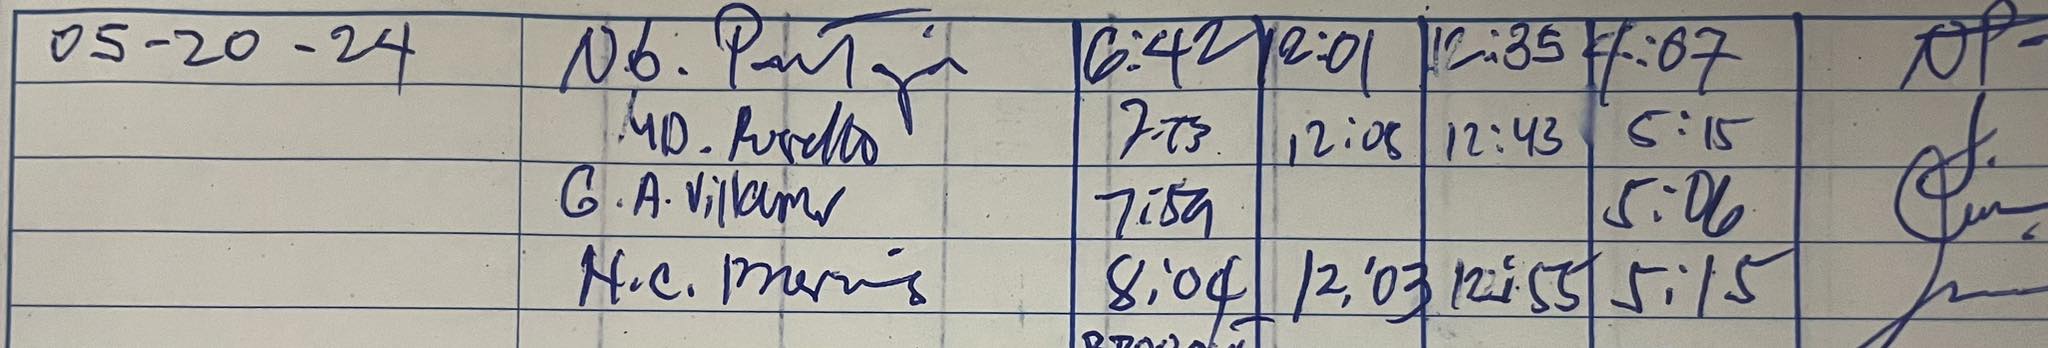 05-20-24 N.b. 6:42 12:01 12:35 4:07 NP
MD. 7:53 12:08 12:43 5:15
G.A. Villamor 7:59 5:06
N.C. 8:04 12:03 12:55 5:15